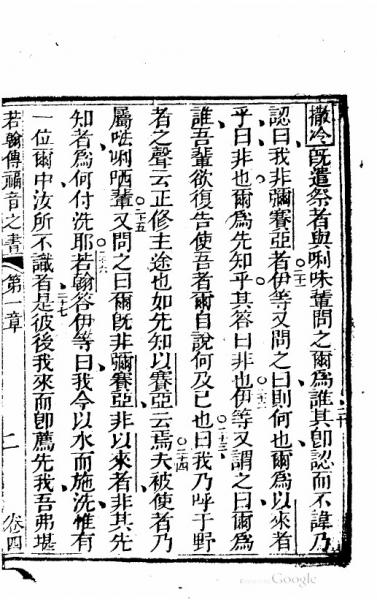 撒冷旣遣祭者與唎味輩問之爾爲誰其卽認而不諱乃
二十
認曰我非彌賽亞者伊等又問之曰則何也爾爲以來者
二十一
乎曰非也爾爲先知乎其答曰非也伊等又謂之曰爾爲
二十二
誰吾輩欲復告使吾者爾自說何及已也曰我乃呼于野
二十三
者之聲云正修主途也如先知以賽亞云焉夫被使者乃
二十四
屬唎哂輩又問之曰爾旣非彌賽亞非以來者非其先
二十五
知者爲何付洗耶若翰答伊等曰我今以水而施洗惟有
二十六
一位爾中汝所不識者是彼後我來而卽薦先我吾弗堪
二十七
若翰傳福音之書 第一章 二 卷四
Google